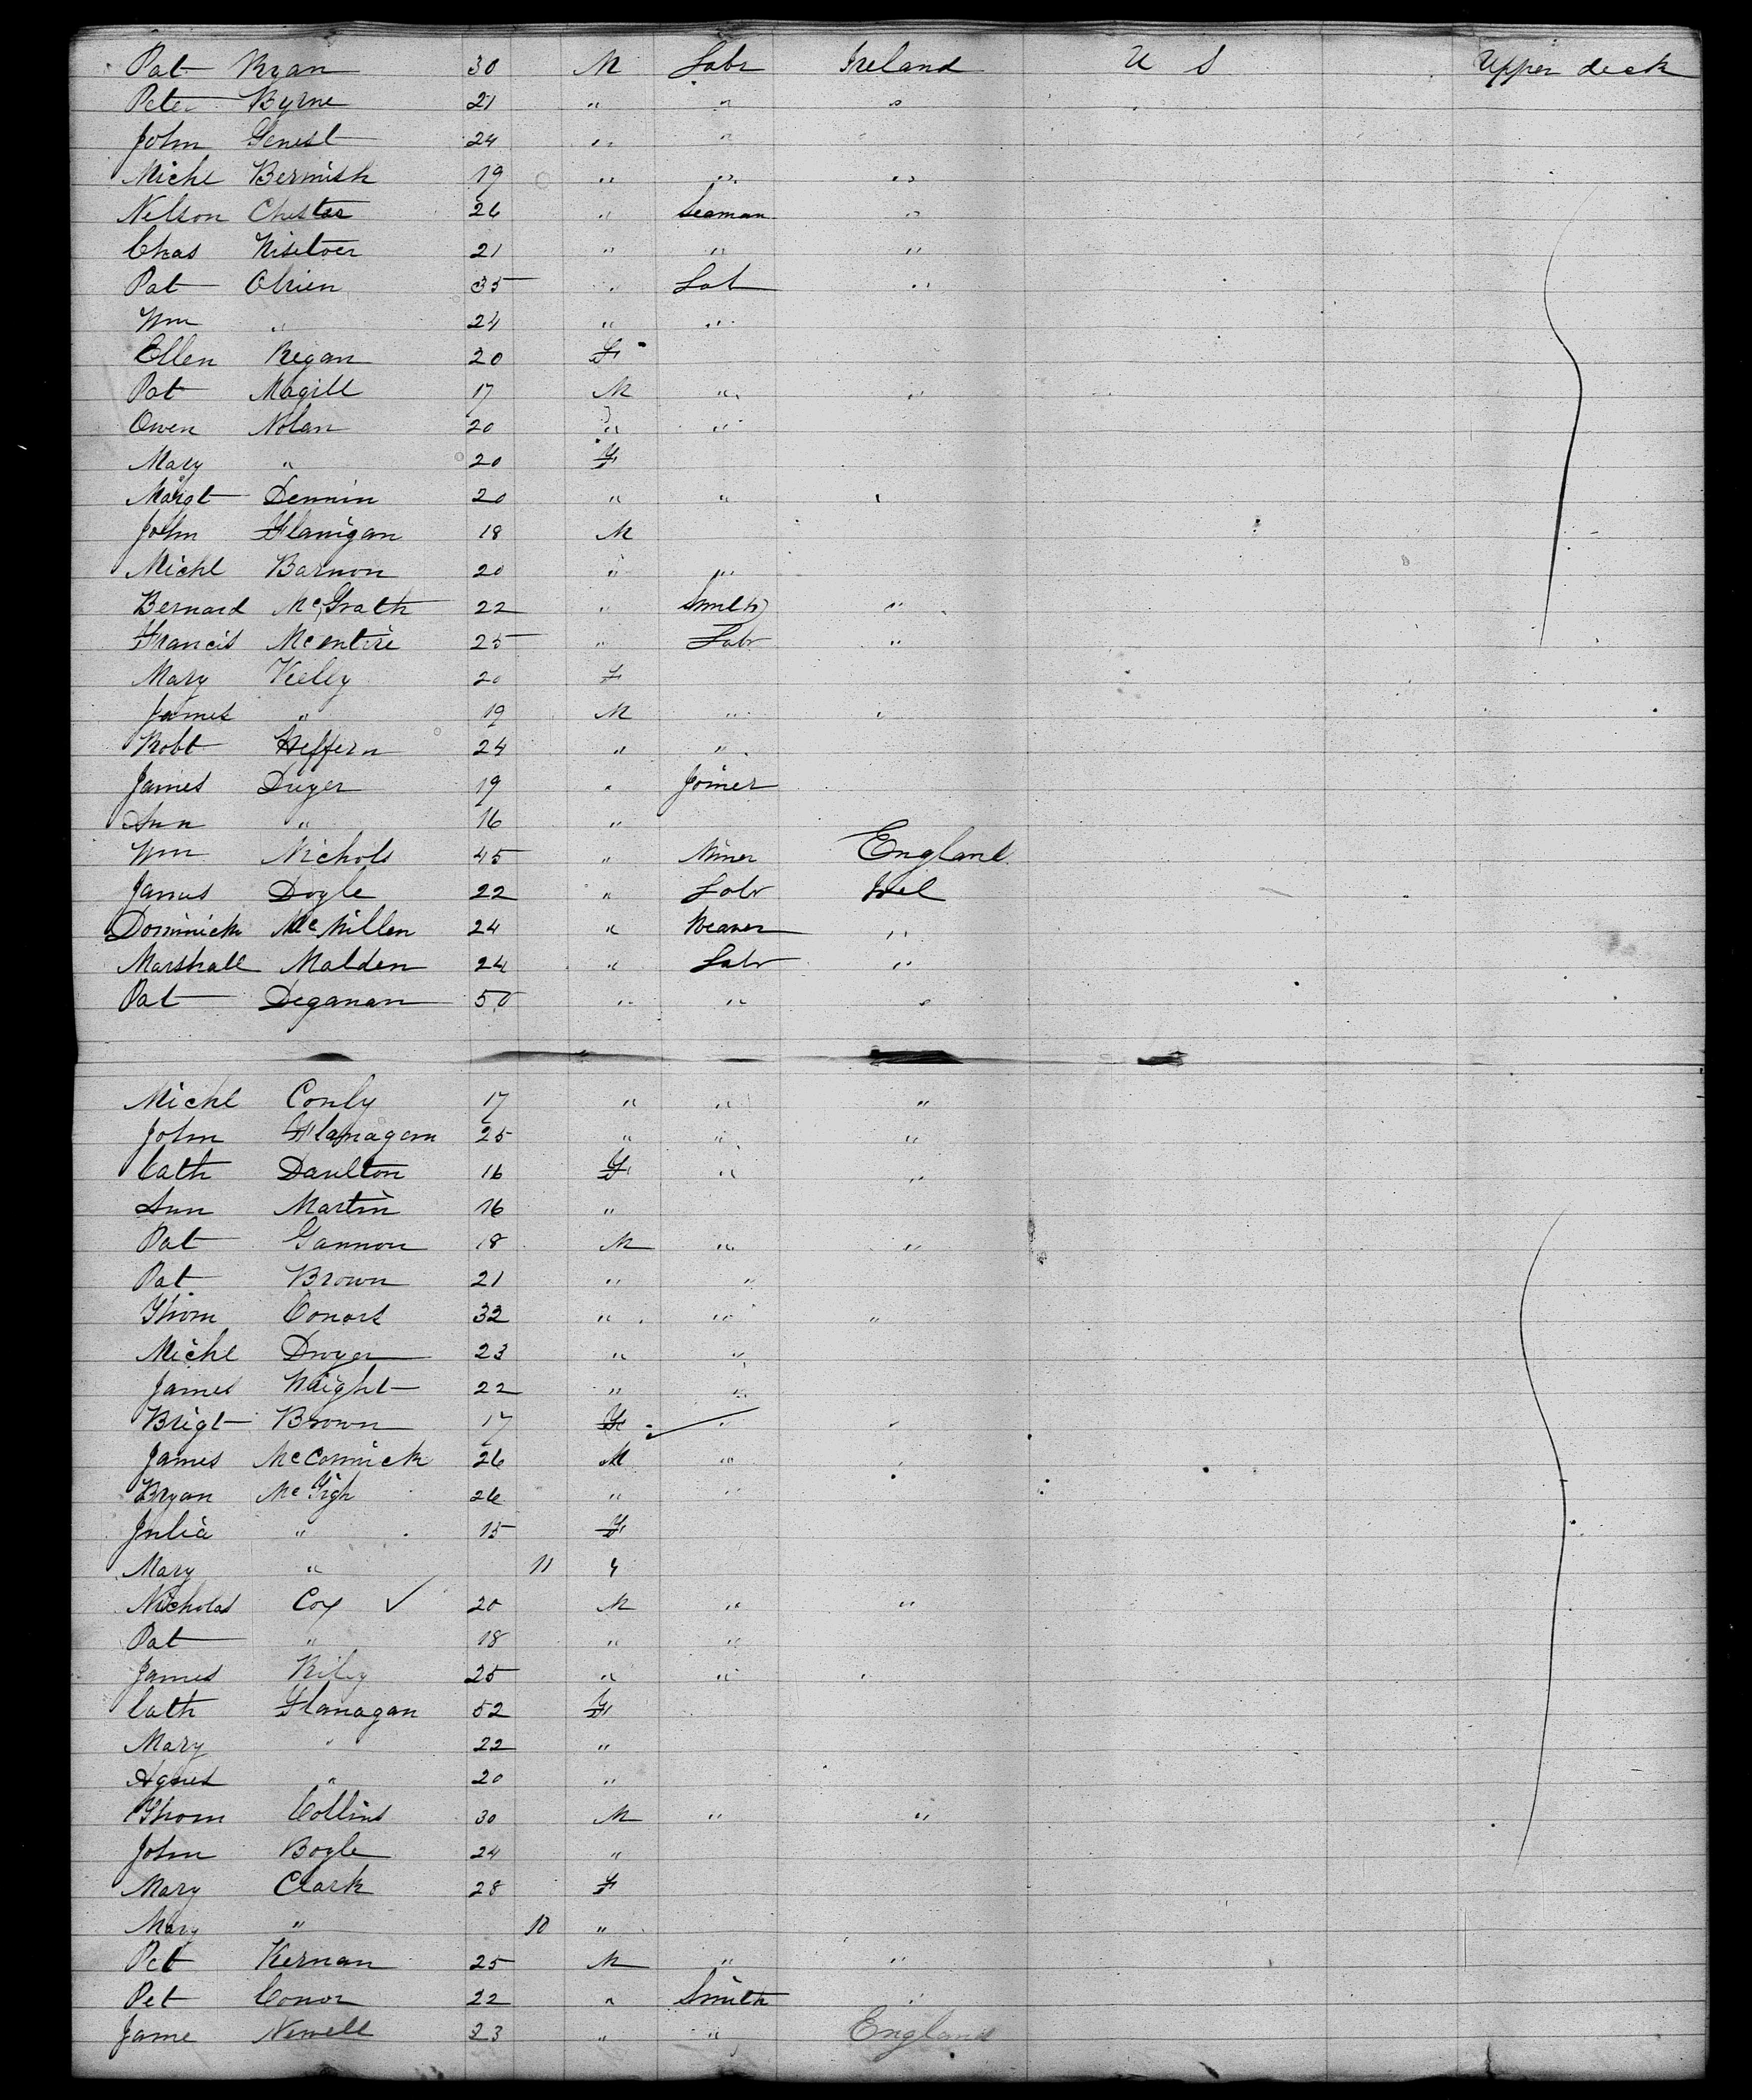 Pat Ryan 30 M Labr Ireland U S Upper deck
Peter Byrne 21 " " "
John 24 " "
Michl 19 " " "
Nelson Chester 26 " Seaman "
Chas 21 " " "
Pat Obrien 35 " Lab "
Wm " 24 " "
Ellen Regan 20 F
Pat Magill 17 M " "
Owen Nolan 20 " "
Mary " 20 F
Margt Dennin 20 " " "
John Flanigan 18 M
Michl Barnon 20 " "
Bernard McGrath 22 " Smith "
Francis McEntire 25 " Labr "
Mary Keeley 20 F
James " 19 M " "
Robt Heffern 24 " "
James Duyer 19 " Joiner
Ann " 16 "
Wm Nichols 45 " Miner England
James Doyle 22 " Labr Irel
Dominick McMillen 24 " Weaver "
Marshall Malden 24 " Labr "
Pat Deganan 50 " " "
Michl Conly 17 " " "
John Flanagan 25 " " "
Cath Daulton 16 F " "
Ann Martin 16 "
Pat Gannon 18 M " "
Pat Brown 21 " "
Thom Conors 32 " " "
Michl Dwyer 23 " "
James 22 " "
Brigt Brown 17 F " "
James McCormick 26 M " "
Bryan 26 " "
Julia " 15 F
Mary " 11 "
Nicholas Cox ✓ 20 M " "
Pat " 18 " "
James Riley 25 " " "
Cath Flanagan 52 F
Mary " 22 "
Agnes " 20 "
Thom Collins 30 M " "
John Boyle 24 "
Mary Clark 28 F
Mary " 10 "
Pet Kernan 25 M " "
Pet Conor 22 " Smith "
Jame Newell 23 " " England